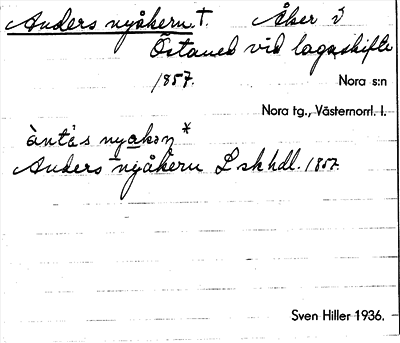 Anders nyåkern †. Åker i
Östaned vid lagaskifte
1857. Nora s:n
Nora tg., Västernorrl. l.
àntə̀s nyakəɳ *
Anders nyåkern L sk hdl. 1857.
Sven Hiller 1936.